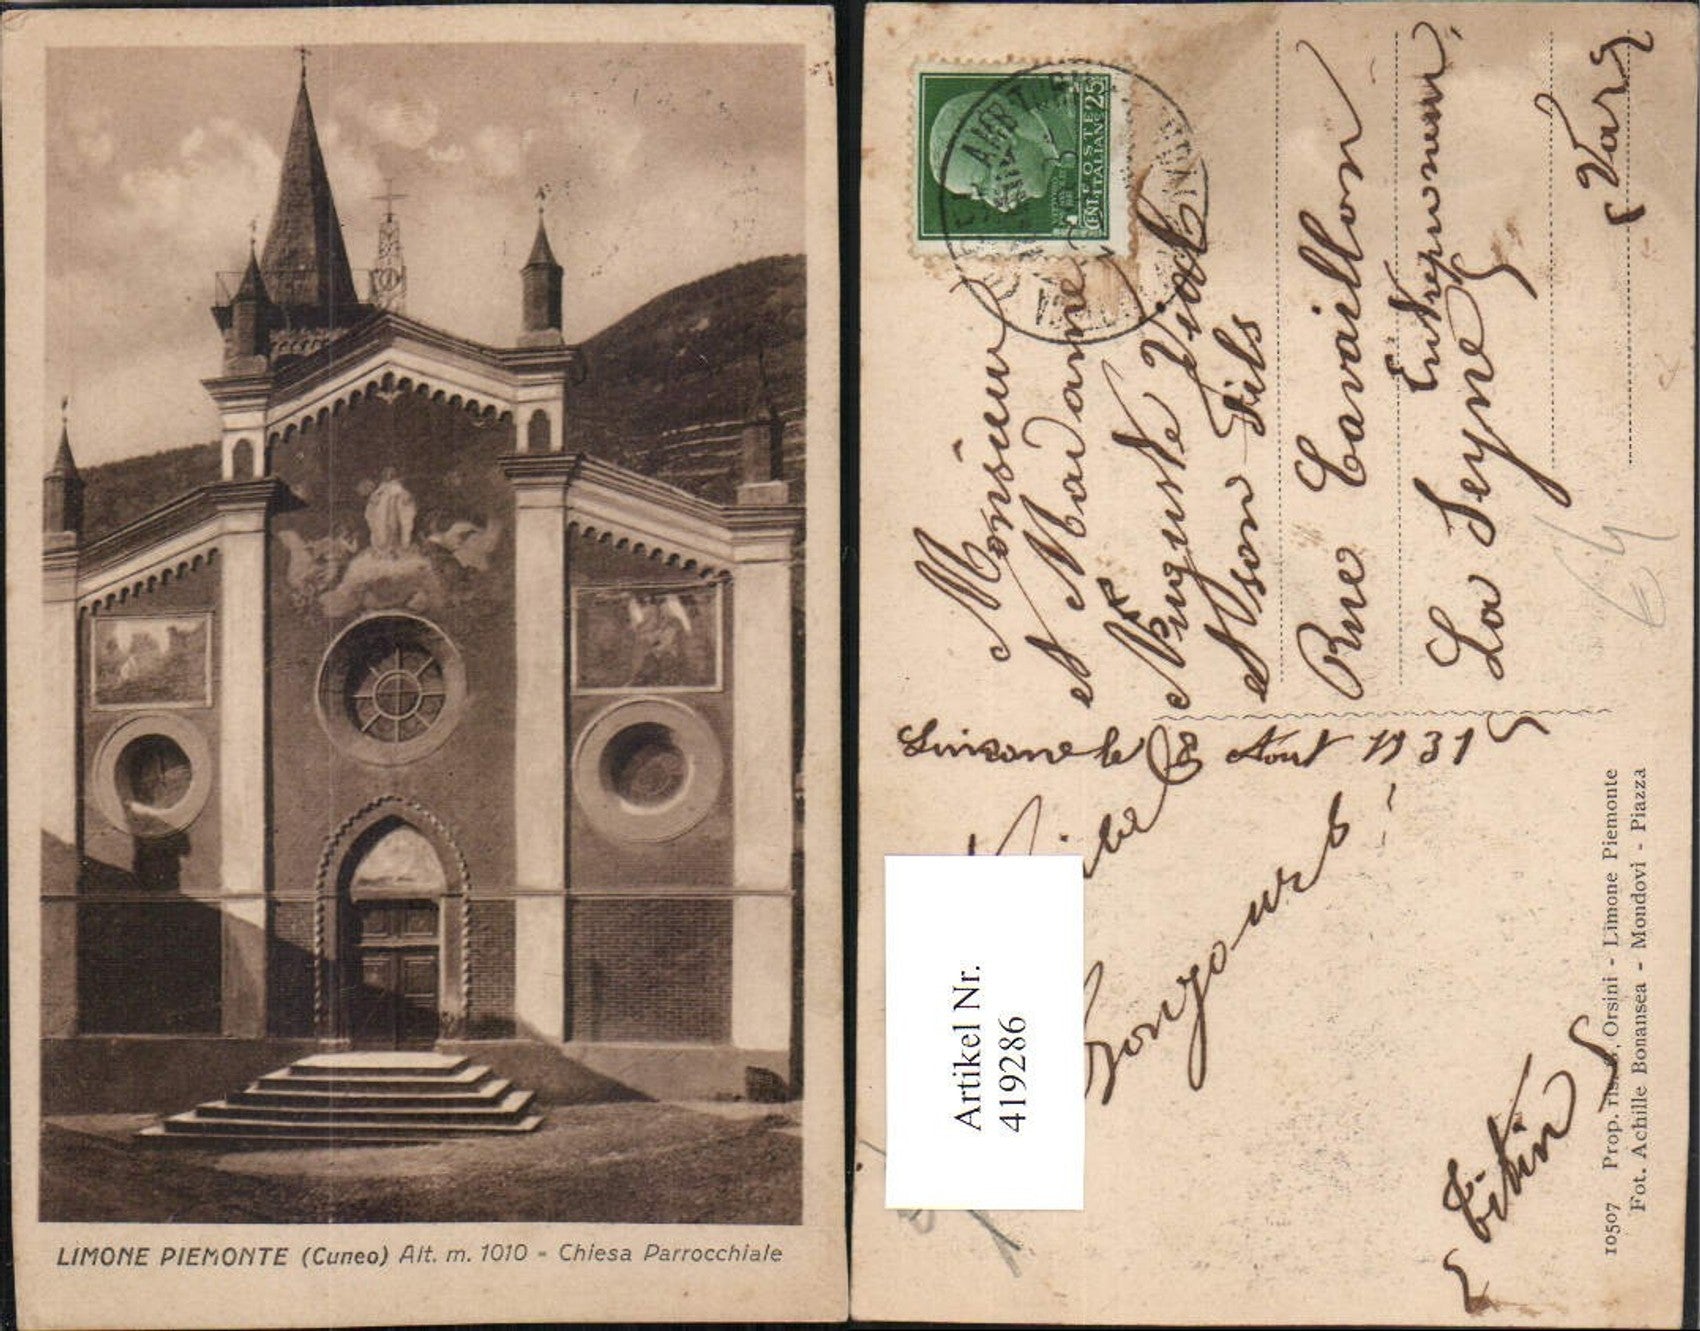 LIMONE PIEMONTE (Cuneo) Alt. m. 1010 - Chiesa Parrocchiale
POSTE
ITALIANE
CENT. 25
Monsieur
et Madame
Auguste Vidal
et son Fils
Rue Cavaillon
Entrepreneur
La Seyne
(Var)
Limone le 8 Aout 1931
Bonjours
Titin
Artikel Nr.
419286
10507 Prop. ris. Orsini - Limone Piemonte
Fot. Achille Bonansea - Mondovì - Piazza